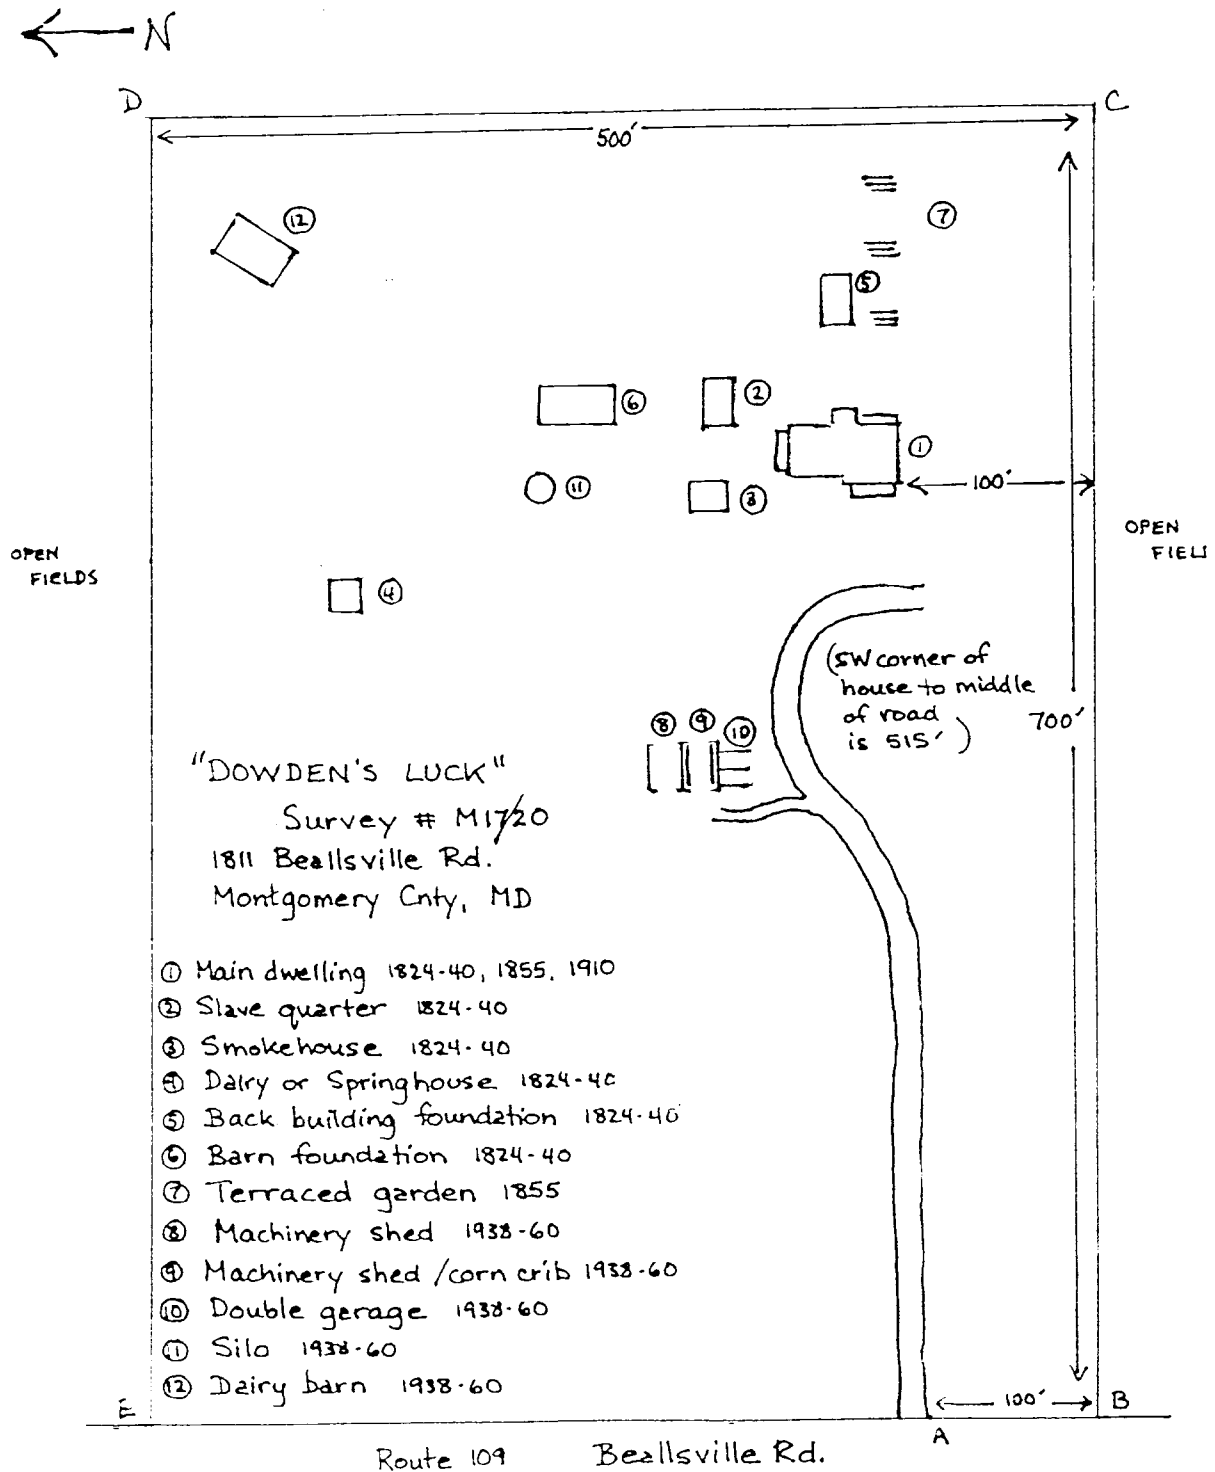 N
D
C
500'
12
7
5
6
2
1
11
3
100'
OPEN
FIELDS
OPEN
FIEL
4
(SW corner of
house to middle
of road
is 515')
700'
8
9
10
"DOWDEN'S LUCK"
Survey # M17/20
1811 Beallsville Rd.
Montgomery Cnty, MD
1 Main dwelling 1824-40, 1855, 1910
2 Slave quarter 1824-40
3 Smokehouse 1824-40
4 Dairy or Springhouse 1824-40
5 Back building foundation 1824-40
6 Barn foundation 1824-40
7 Terraced garden 1855
8 Machinery shed 1938-60
9 Machinery shed /corn crib 1938-60
10 Double garage 1938-60
11 Silo 1938-60
12 Dairy barn 1938-60
E
100'
B
A
Route 109 Beallsville Rd.